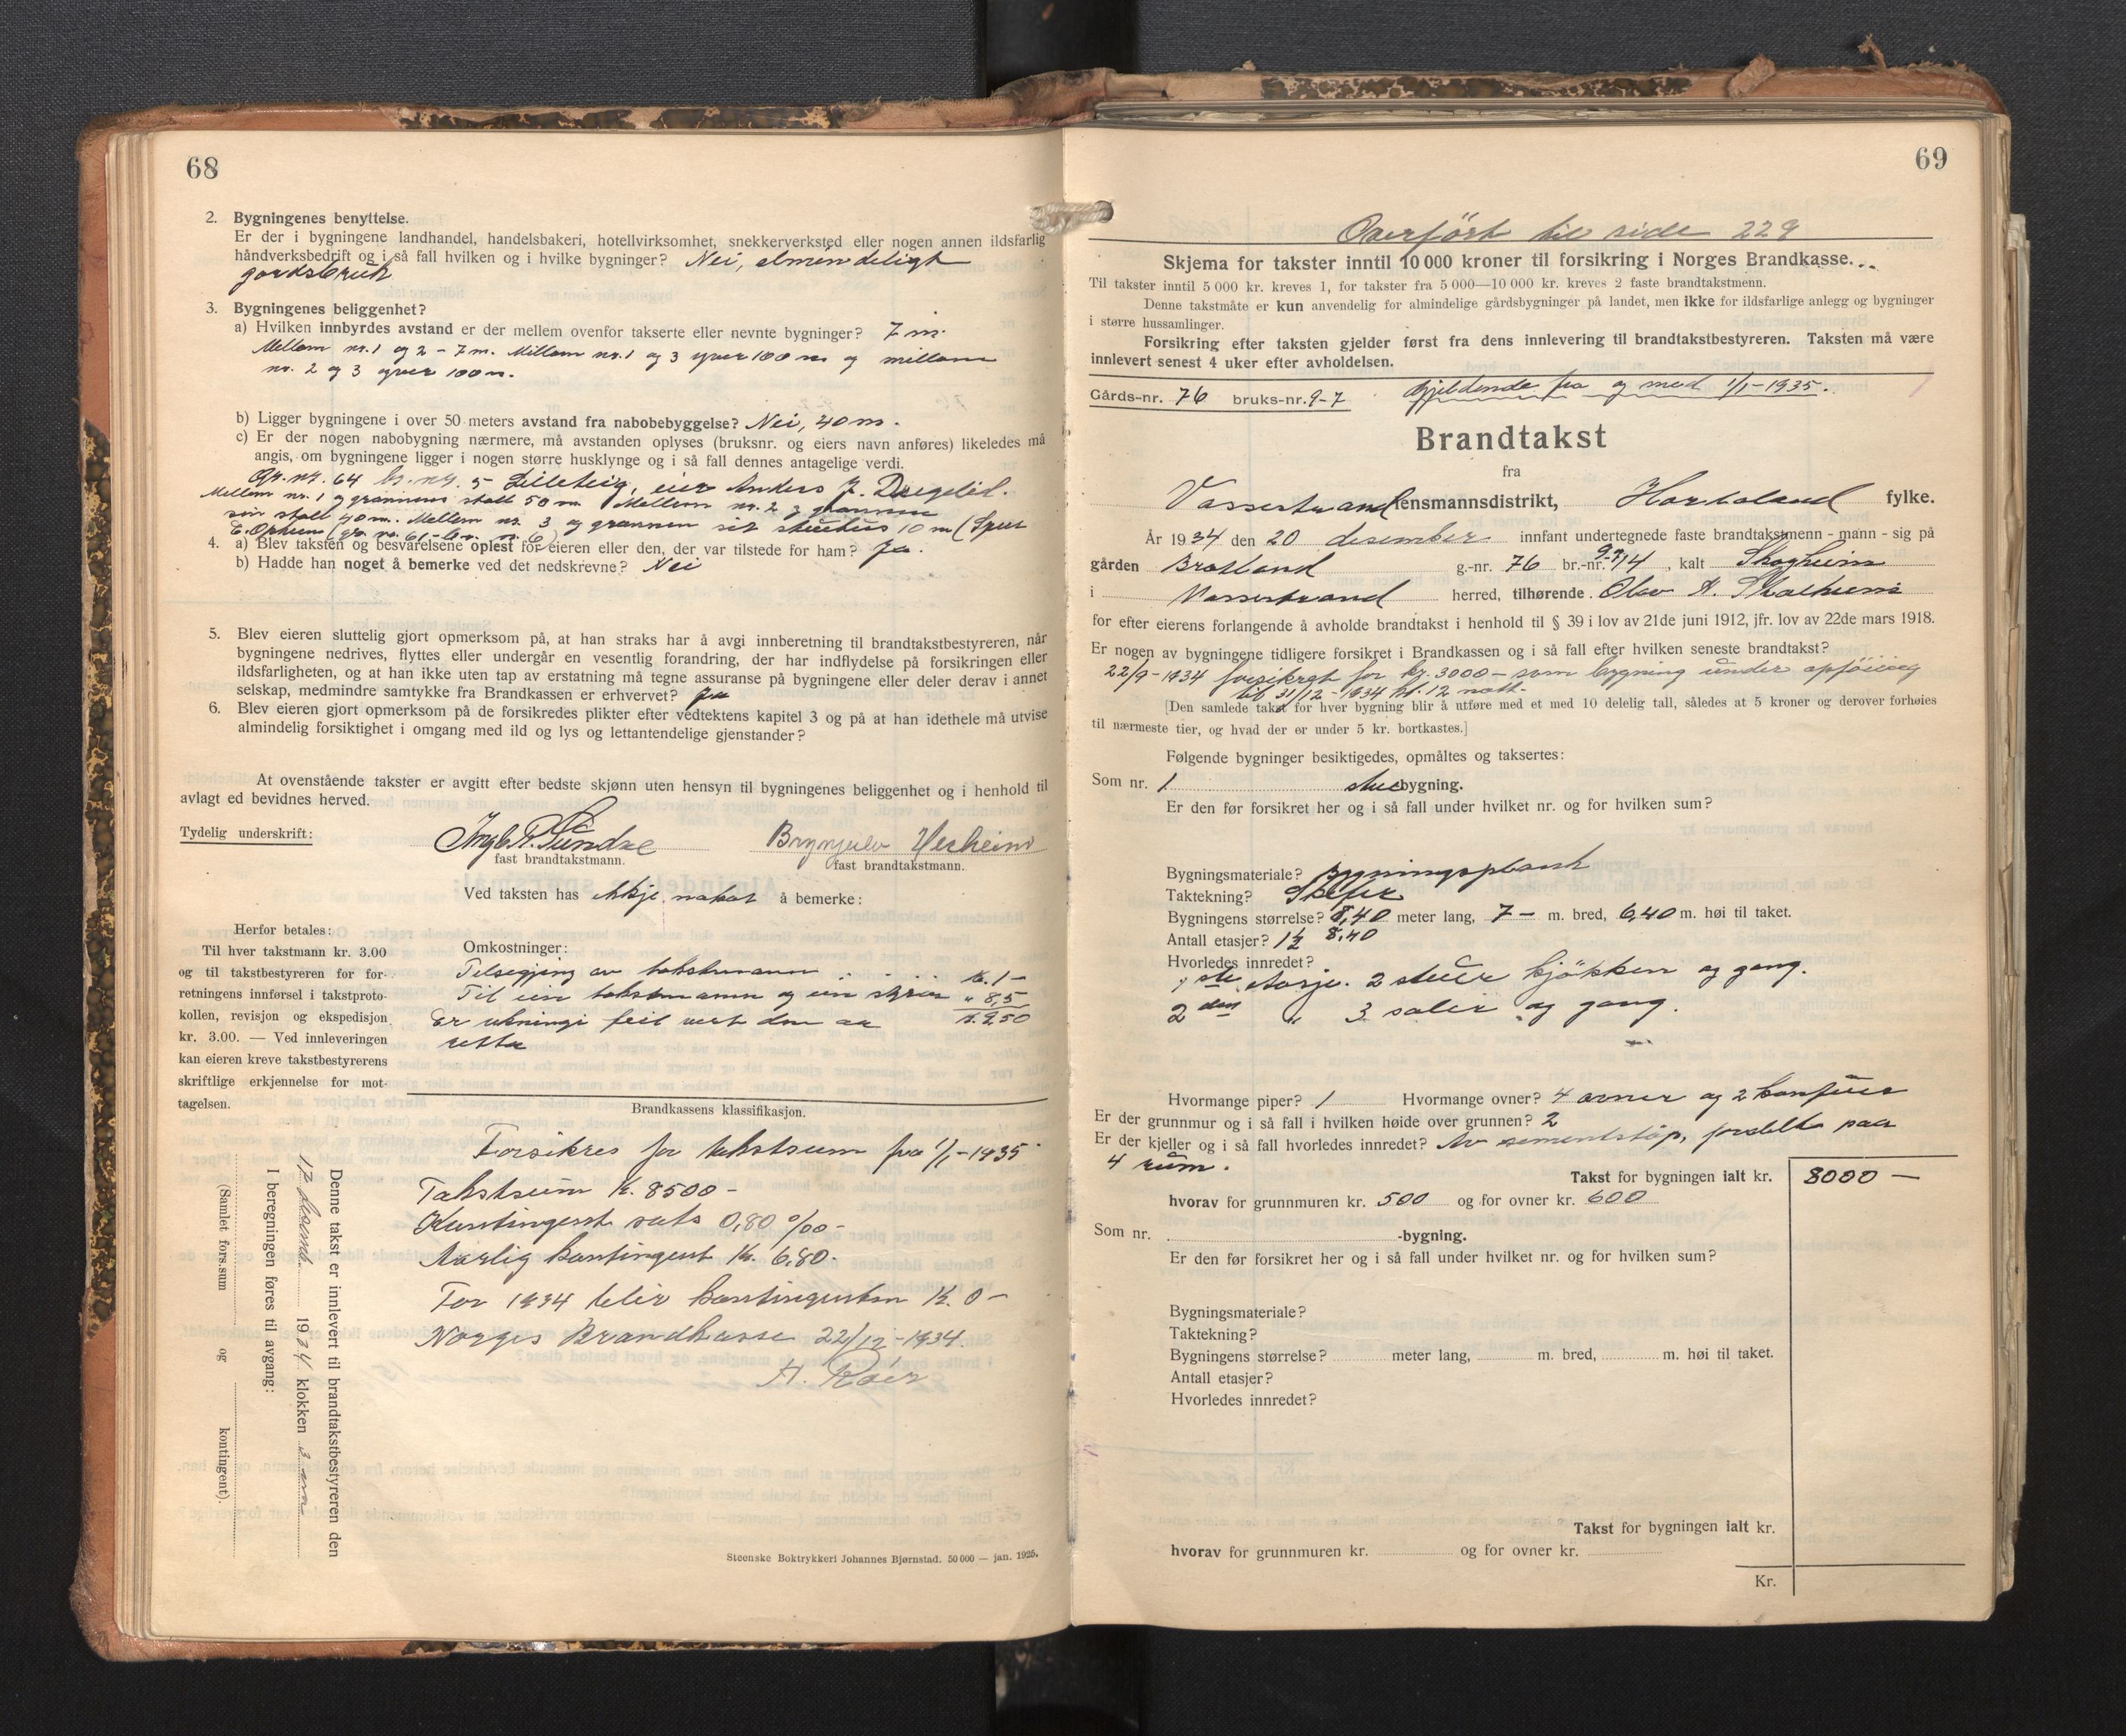 68
2. Bygningenes benyttelse.
Er der i bygningene landhandel, handelsbakeri, hotellvirksomhet, snekkerverksted eller nogen annen ildsfarlig
håndverksbedrift og i så fall hvilken og i hvilke bygninger? Nei, almindeligt
gardsbruk
3. Bygningenes beliggenhet?
a) Hvilken innbyrdes avstand er der mellem ovenfor takserte eller nevnte bygninger? 7 m.
Mellom nr. 1 og 2 - 7 m. Millom nr. 1 og 3 yver 100 m og millom
nr. 2 og 3 yver 100 m.
b) Ligger bygningene i over 50 meters avstand fra nabobebyggelse? Nei, 40 m.
c) Er der nogen nabobygning nærmere, må avstanden oplyses (bruksnr. og eiers navn anføres) likeledes må
angis, om bygningene ligger i nogen større husklynge og i så fall dennes antagelige verdi.
Gr. nr. 64 br. nr. 5 Lilleteig, eier Anders J.
Mellem nr. 1 og grannens stall 50 m Mellem nr. 2 og grannen
sin stall 40 m. Mellem nr. 3 og grannen sit stuehus 10 m
(gr. nr. 61 - br. nr. 6)
4. a) Blev taksten og besvarelsene oplest for eieren eller den, der var tilstede for ham? Ja.
b) Hadde han noget å bemerke ved det nedskrevne? Nei
5. Blev eieren sluttelig gjort opmerksom på, at han straks har å avgi innberetning til brandtakstbestyreren, når
bygningene nedrives, flyttes eller undergår en vesentlig forandring, der har indflydelse på forsikringen eller
ildsfarligheten, og at han ikke uten tap av erstatning må tegne assuranse på bygningene eller deler derav i annet
selskap, medmindre samtykke fra Brandkassen er erhvervet? Ja
6. Blev eieren gjort opmerksom på de forsikredes plikter efter vedtektens kapitel 3 og på at han idethele må utvise
almindelig forsiktighet i omgang med ild og lys og lettantendelige gjenstander?
At ovenstående takster er avgitt efter bedste skjønn uten hensyn til bygningenes beliggenhet og i henhold til
avlagt ed bevidnes herved.
Tydelig underskrift:
fast brandtakstmann. fast brandtakstmann.
Ved taksten has ikkje nokot å bemerke:
Herfor betales:
Til hver takstmann kr. 3.00
og til takstbestyreren for for-
retningens innførsel i takstproto-
kollen, revisjon og ekspedisjon
kr. 3.00. — Ved innleveringen
kan eieren kreve takstbestyrerens
skriftlige erkjennelse for mot-
tagelsen.
Omkostninger:
Tilsegjing av takstmann kr. 1-
Til ein takstmann og ein " 8,5
9.50
retta
Brandkassens klassifikasjon.
Forsikres for takstsum fra 1/1-1935
Takstsum kr. 8500-
Kontingent sats 0,80 0/00-
Aarlig kontingent kr. 6,80-
For 1934 blir kontingenten kr. 0-
Norges Brandkasse 22/12-1934.
Denne takst er innlevert til brandtakstbestyreren den
1934 klokken 3
I beregningen føres til avgang:
(Samlet fors.sum og kontingent).
Steenske Boktrykkeri Johannes Bjørnstad. 50 000 — jan. 1925.
69
Overført til side 229
Skjema for takster inntil 10 000 kroner til forsikring i Norges Brandkasse.
Til takster inntil 5 000 kr. kreves 1, for takster fra 5 000—10 000 kr. kreves 2 faste brandtakstmenn.
Denne takstmåte er kun anvendelig for almindelige gårdsbygninger på landet, men ikke for ildsfarlige anlegg og bygninger
i større hussamlinger.
Forsikring efter taksten gjelder først fra dens innlevering til brandtakstbestyreren. Taksten må være
innlevert senest 4 uker efter avholdelsen.
Gårds-nr. 76 bruks-nr. 9-7 Gjeldende fra og med 1/1-1935.
Brandtakst
fra
Vossestrand lensmannsdistrikt, Hordaland fylke.
År 1934 den 20 desember innfant undertegnede faste brandtakstmenn - mann - sig på
gården g.-nr. 76 br.-nr. kalt Skogheim
i Vossestrand herred, tilhørende Olav A. Stalheim
for efter eierens forlangende å avholde brandtakst i henhold til § 39 i lov av 21de juni 1912, jfr. lov av 22de mars 1918.
Er nogen av bygningene tidligere forsikret i Brandkassen og i så fall efter hvilken seneste brandtakst?
22/9-1934 forsikret for kr. 3000- som bygning under opføring
til 31/12-1934 kl. 12 natt.
[Den samlede takst for hver bygning blir å utføre med et med 10 delelig tall, således at 5 kroner og derover forhøies
til nærmeste tier, og hvad der er under 5 kr. bortkastes.]
Følgende bygninger besiktigedes, opmåltes og taksertes:
Som nr. 1 stuebygning.
Er den før forsikret her og i så fall under hvilket nr. og for hvilken sum?
Bygningsmateriale? Bygningsplank
Taktekning? Skifer
Bygningens størrelse? 8,40 meter lang, 7- m. bred, 6,40 m. høi til taket.
Antall etasjer? 1½ 8,40
Hvorledes innredet?
1ste etasje. 2 stuer kjøkken og gang.
2den " 3 saler og gang.
Hvormange piper? 1 Hvormange ovner? 4 ovner og 2 komfurer
Er der grunnmur og i så fall i hvilken høide over grunnen? 2
Er der kjeller og i så fall hvorledes innredet? Av sementstøp, fordelt paa
4 rum.
Takst for bygningen ialt kr. 8000 —
hvorav for grunnmuren kr. 500 og for ovner kr. 600
Som nr. -bygning.
Er den før forsikret her og i så fall under hvilket nr. og for hvilken sum?
Bygningsmateriale?
Taktekning?
Bygningens størrelse? meter lang, m. bred, m. høi til taket.
Antall etasjer?
Hvorledes innredet?
Takst for bygningen ialt kr.
hvorav for grunnmuren kr. og for ovner kr.
Kr.